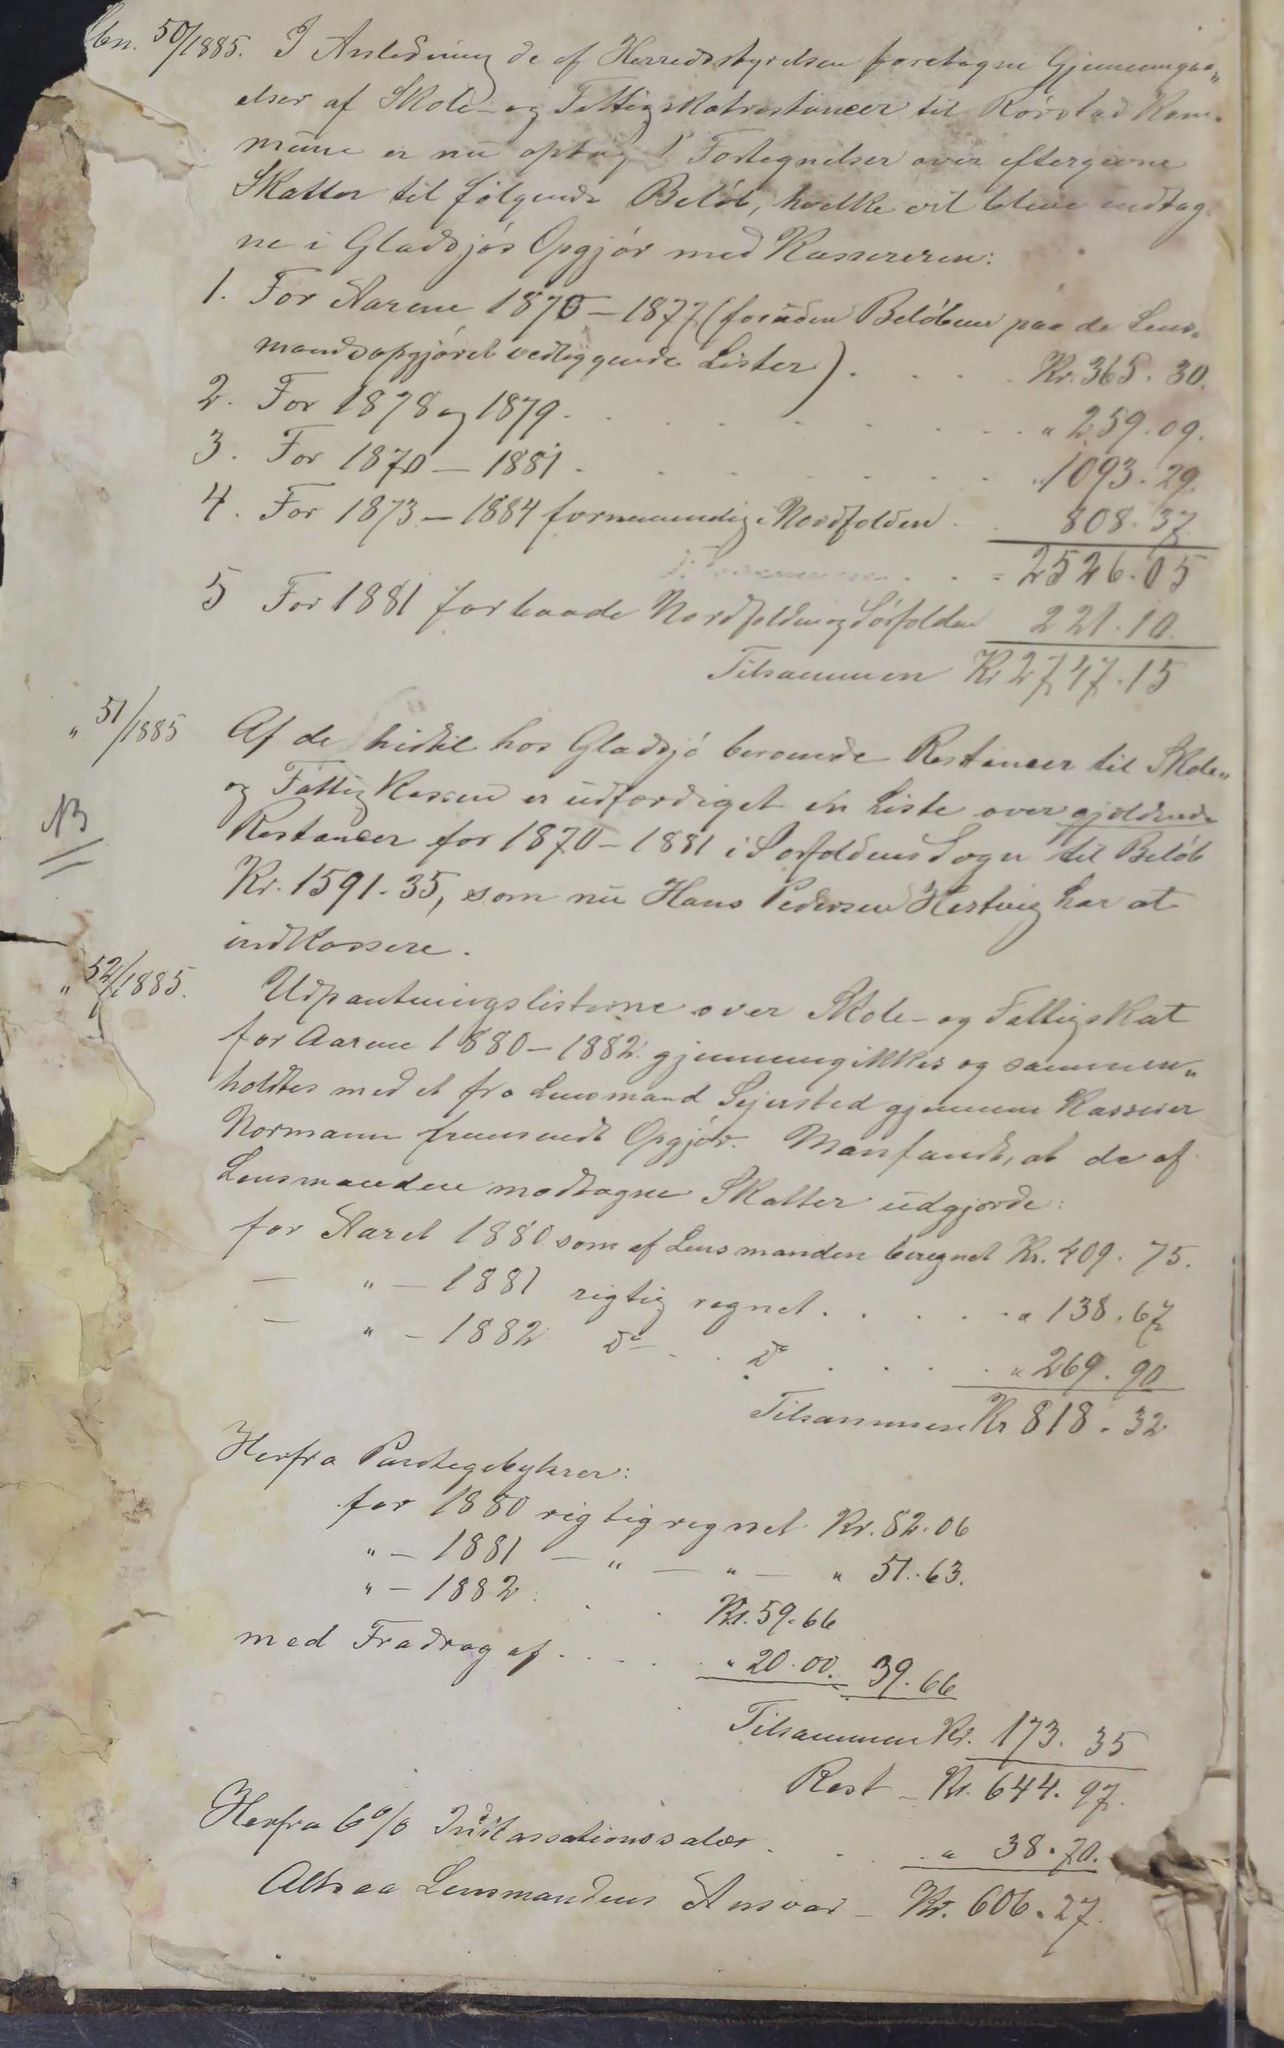 bn. 50/1885. I Anledning de af Herredsstyrelsen foretagne Gjennemgaa„
elser af Skole- og Fattigskatrestancer til Rørstad Kom-
mune er nu optag Fortegnelser over eftergivne
Skatter til følgende Beløb, hvilke vil blive indtag-
ne i Gladsjøs Opgjør med Kassereren:
1. For Aarene 1870 - 1877 (foruden Beløbene paa de Lens-
mandsopgjøret vedliggende Lister) . . . . Kr. 365. 30.
2. For 1878 og 1879. . . . . . . . " 259. 09.
3. For 1870 - 1881 . . . . . . . " 1093. 29.
4. For 1873 - 1884 fornemmelig Nordfolden . . 808. 37
. . = 2526. 05
5 For 1881 for baade Nordfolden og Sørfolden 221. 10.
Tilsammen Kr 2747. 15
" 51/1885 Af de hidtil hos Gladsjø beroende Restancer til Skole„
og Fattigkassen er udfærdiget én Liste over gjældende
NB
Restancer for 1870 - 1881 i Sørfoldens Sogn til Beløb
Kr. 1591. 35, som nu Hans Pedersen Hestvig har at
indkassere.
" 52/1885. Udpantningslisterne over Skole- og Fattigskat
for Aarene 1880 - 1882 gjennemgikkes og sammen„
holdtes med et fra Lensmand Sejersted gjennem Kasserer
Normann fremsendt Opgjør. Man fandt, at de af
Lensmanden modtagne Skatter udgjorde:
for Aaret 1880 som af Lensmanden beregnet Kr. 409. 75.
— " — 1881 rigtig regnet . . . . . " 138. 67
— " — 1882 Do . . Do . . . . " 269. 90
Tilsammen Kr 818. 32
Herfra Pantegebyhrer:
for 1880 rigtig regnet Kr. 82. 06
" — 1881 — " — " — " 51. 63.
" — 1882 . . . Kr. 59. 66
med Fradrag af . . . . . " 20. 00. 39. 66
Tilsammen Kr. 173. 35
Rest - Kr. 644. 97.
Herfra 6 % Indkassationssalær . . . " 38. 70.
Altsaa Lensmandens Ansvar - Kr. 606. 27.